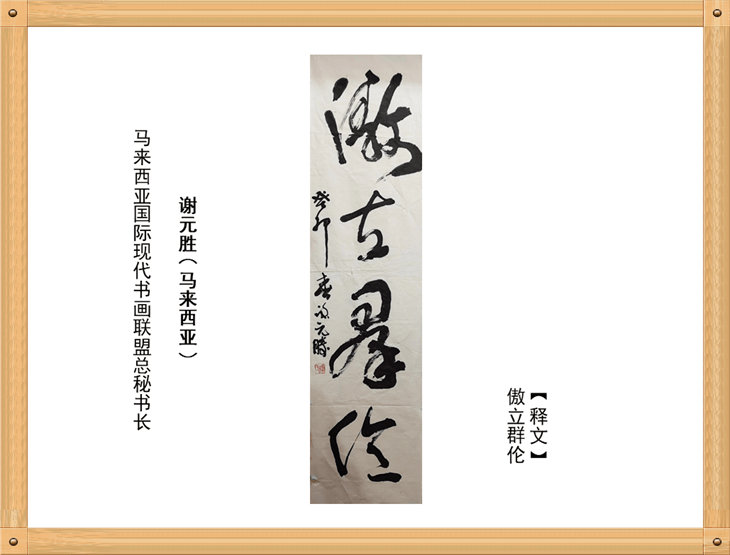 【释文】
傲立群伦
傲立羣伦
癸卯春谢元胜
谢元胜（马来西亚）
马来西亚国际现代书画联盟总秘书长